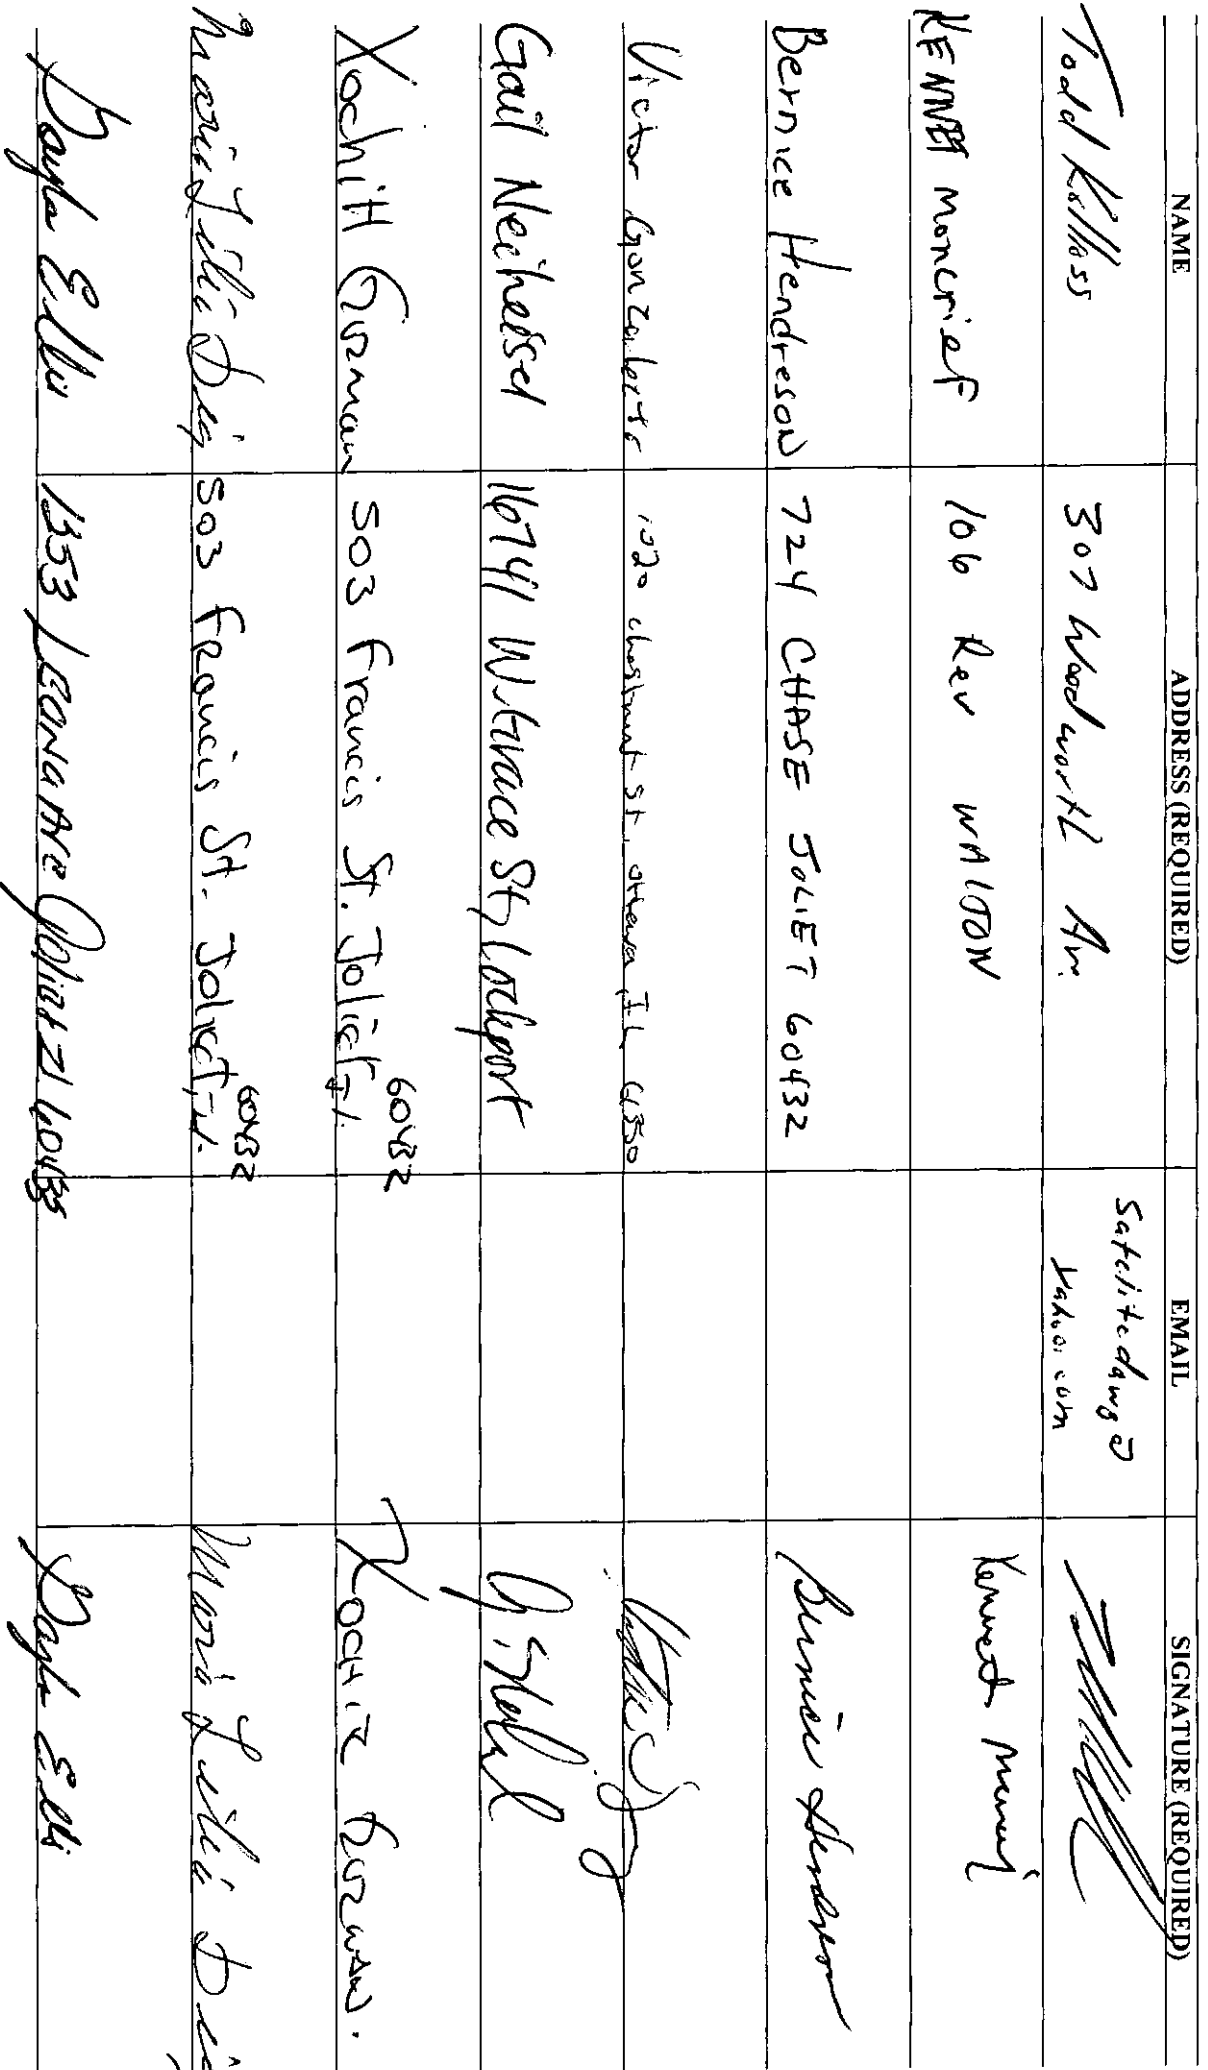 NAME ADDRESS (REQUIRED) EMAIL SIGNATURE (REQUIRED)
Todd Killoss 307 Woodworth Av. Satelitedawg@
yahoo.com
KENNET Moncrief 106 Rev WALTON Kennet
Bernice Hendreson 724 CHASE JOLIET 60432 Bernice Henderson
Victor 1020 chestnut st. ottawa, IL
Gail Neiheisel 16741 W. St, Lockport
Xochitl Guzman 503 Francis St. Joliet Il. 60432 Xochitl Guzman.
503 Francis St. Joliet, Il. 60432
Gayla Ellis 1353 LEONA Ave Joliet Il Gayla Ellis